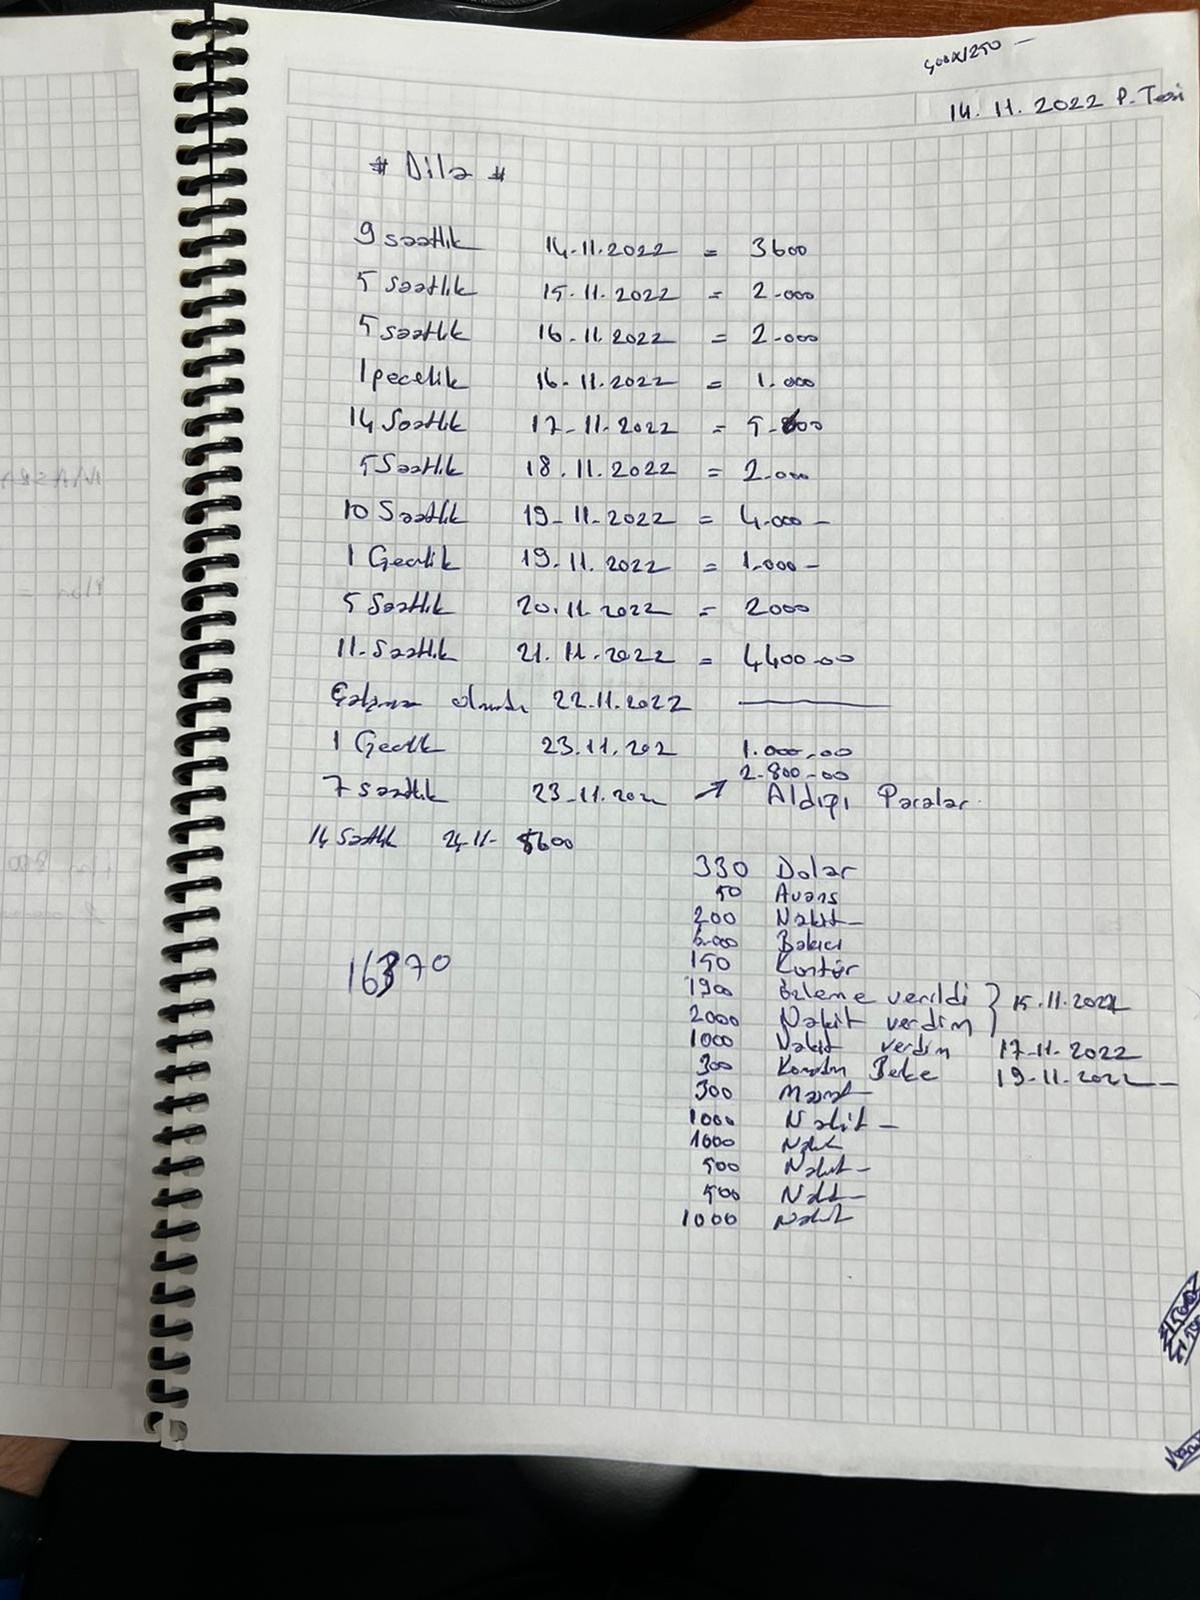 14.11.2022 P.Tesi
# Dila #
9 saatlik 14.11.2022 = 3600
5 saatlik 15.11.2022 = 2.000
5 saatlik 16.11.2022 = 2.000
1 pecelik 16.11.2022 = 1.000
14 Saatlik 17.11.2022 = 5.600
5 Saatlik 18.11.2022 = 2.000
10 Saatlik 19-11-2022 = 4.000 -
1 Gecelik 19.11.2022 = 1.000 -
5 Saatlik 20.11.2022 = 2000
11-Saatlik 21.11.2022 = 4400.00
Çalışma olmadı 22.11.2022
1 Gecelik 23.11.202 1.000,00
2.800-00
7 saatlik 23-11.202 → Aldıpı Paralar.
14 Saatlik 24-11- 5600
330 Dolar
50 Avans
200 Nakit
6.000 Bakıcı
16370
150 Kontör
1900 özleme verildi } 15.11.2022
2000 Nakit verdim
1000 Nakit verdim 17-11-2022
300 19-11-2022
300
1000 Nakit -
1000 Nakit
500 Nakit -
500 Nakit
1000 Nakit